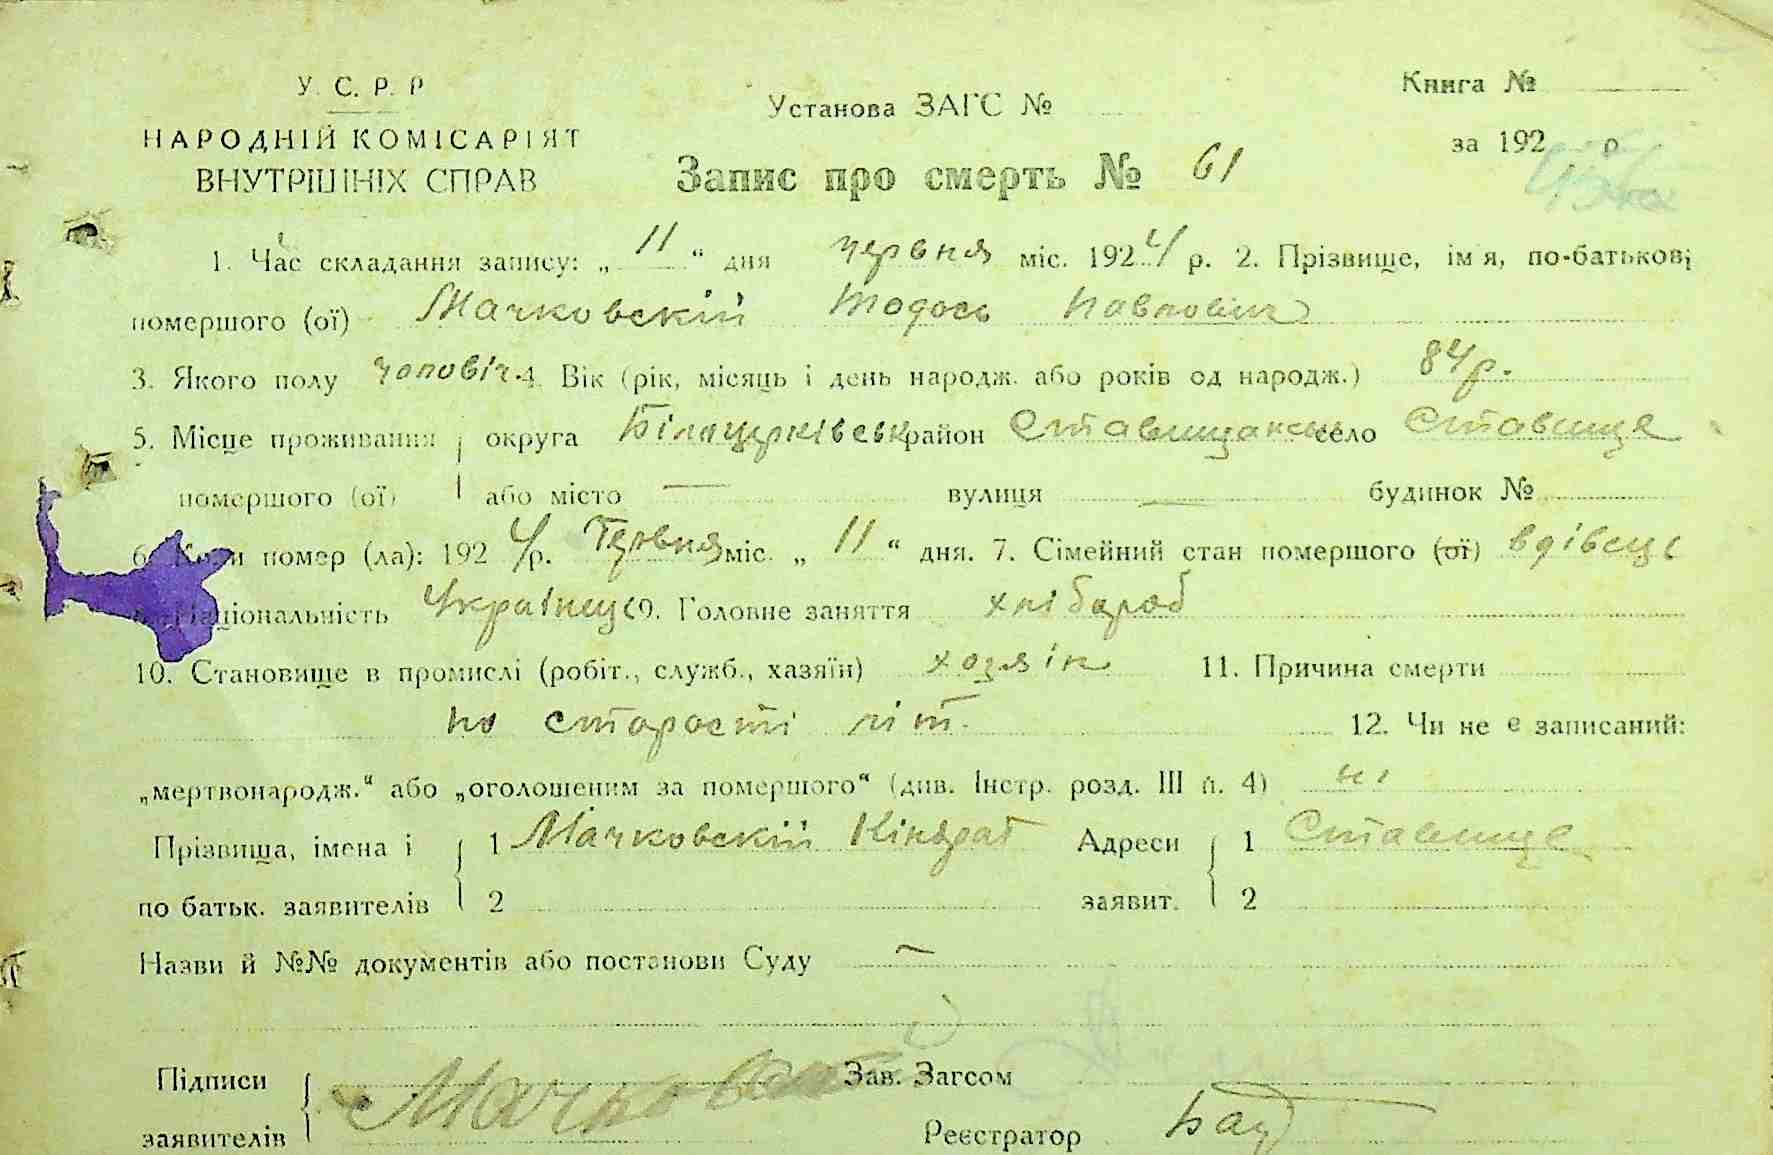 У. С. Р. Р
Установа ЗАГС №
Книга №
НАРОДНІЙ КОМІСАРІЯТ
ВНУТРІШНІХ СПРАВ
за 192 р
Запис про смерть № 61
1. Час складання запису: „ 11 “ дня червня міс. 1924 р. 2. Прізвище, імя, по-батькові
помершого (ої) Мачковскій Тодось Павлович
3. Якого полу чоловіч. 4. Вік (рік, місяць і день народж. або років од народж.) 84 р.
5. Місце проживання округа Білоцерківськ район Ставищанськ село Ставище
помершого (ої) або місто — вулиця — будинок №
6. Коли помер (ла): 1924 р. Червня міс. „ 11 “ дня. 7. Сімейний стан помершого (ої) вдівець
Національність Українець 9. Головне заняття хлібороб
10. Становище в промислі (робіт., служб., хазяїн) хозяін 11. Причина смерти
по старості літ. 12. Чи не є записаний:
„мертвонародж.“ або „оголошеним за помершого“ (див. Інстр. розд. III п. 4) ні
Прізвища, імена і 1 Мачковскій Кіндрат Адреси 1 Ставище
по батьк. заявителів 2 заявит. 2
Назви й №№ документів або постанови Суду —
Підписи Зав. Загсом
заявителів Реєстратор